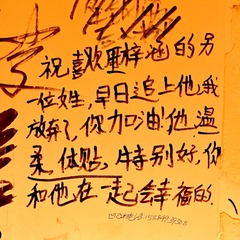 祝喜欢里梓涵的另
一位姓,早日追上他,我
放弃了,你加油!他温
柔,体贴,特别好,你
和他在一起会幸福的.